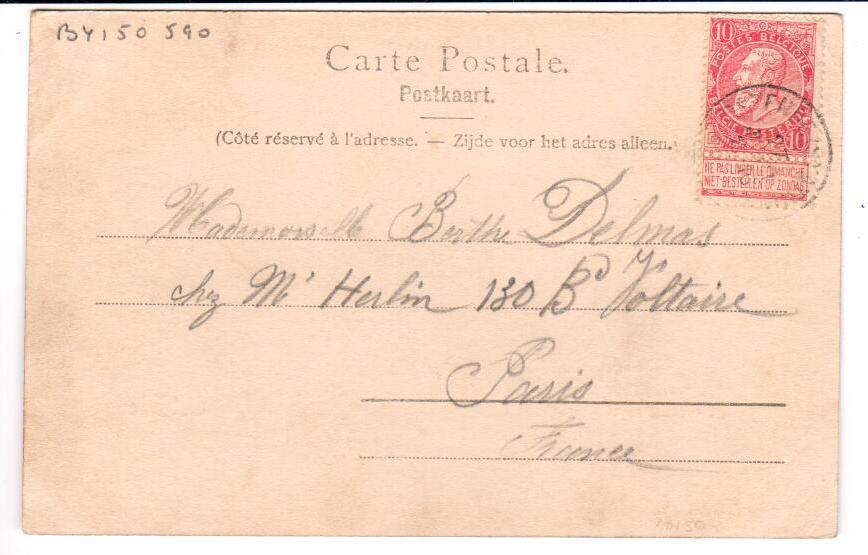 BY150 590
Carte Postale.
Postkaart.
(Côté réservé à l'adresse. — Zijde voor het adres alleen.)
10
POSTES BELGIQUE
BELGIË
10
NE PAS LIVRER LE DIMANCHE
NIET BESTELLEN OP ZONDAG
Mademoiselle Berthe Delmas
chez Mr Herlin 130 Bd Voltaire
Paris
France